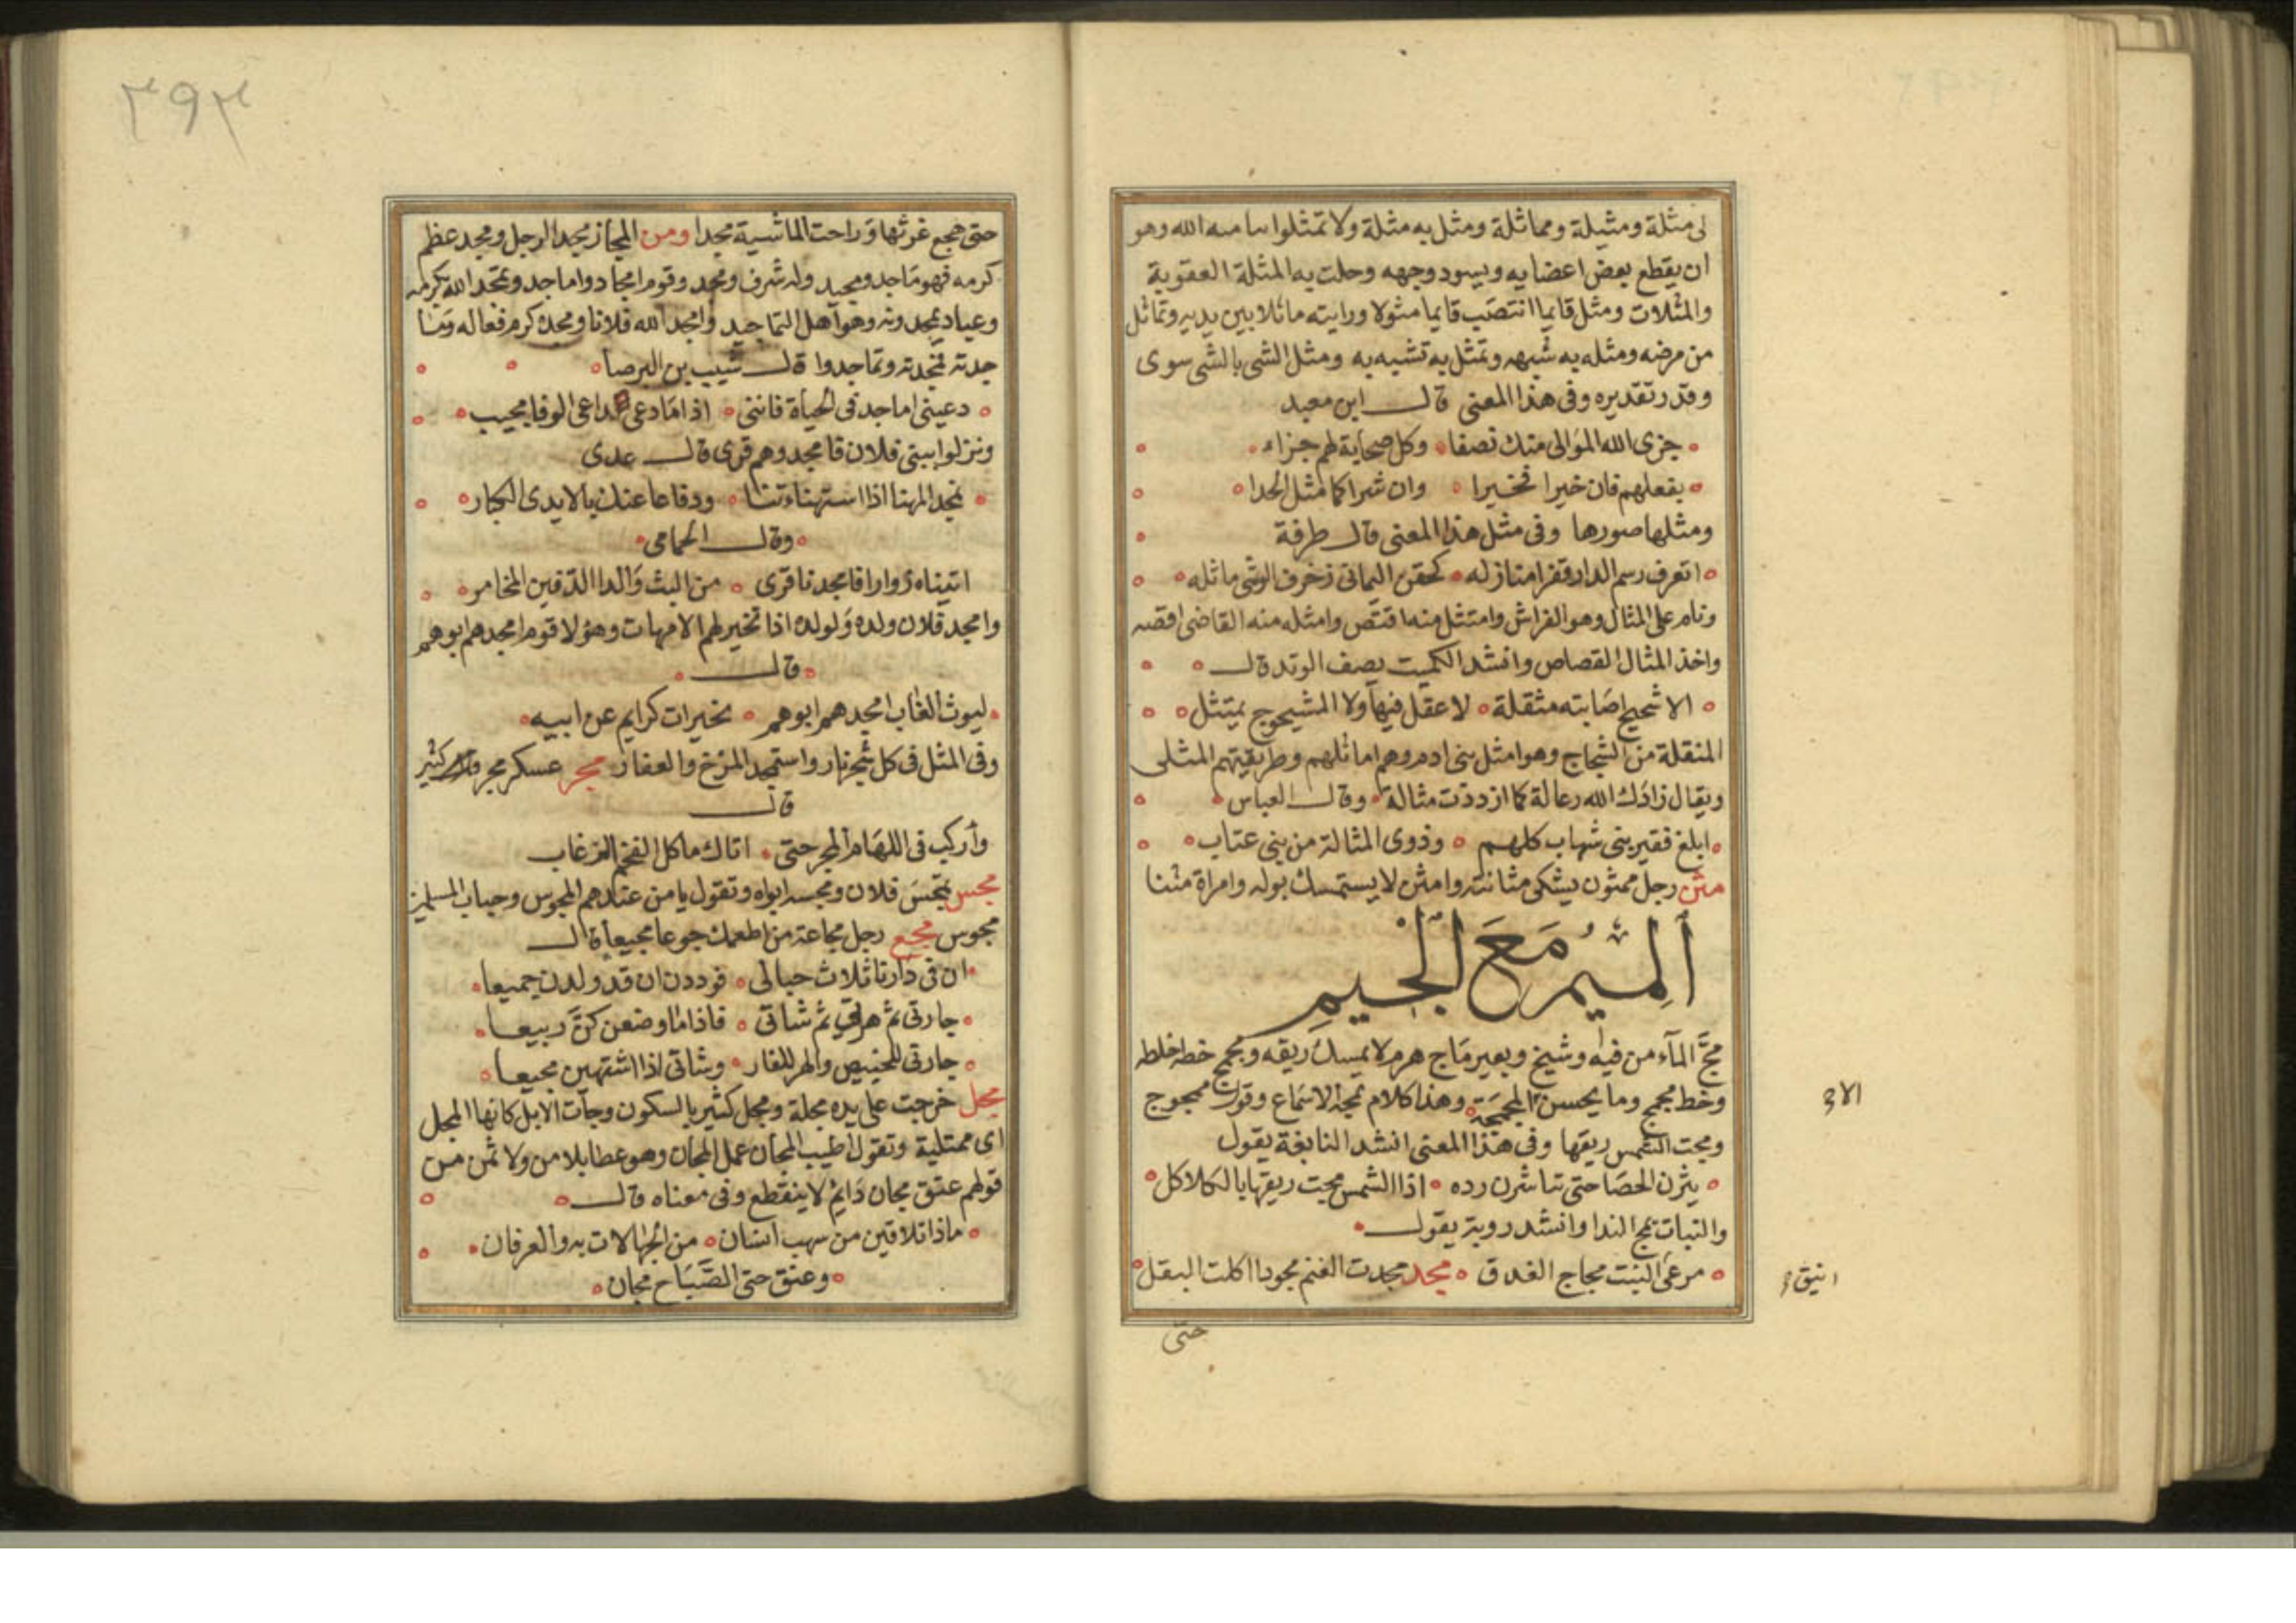 لى مثلة ومثيلة ومماثلة ومثل به مثلة ولا تمثلوا بنامية الله وهو
ان يقطع بعض اعضايه ويسود وجهه وحلت به المثلة العقوبة
والمثلات ومثل قايما انتصب قايما مثولا ورايته ماثلا بين يديه وتماثل
من مرضه ومثله به شبهه وتمثل به تشبه به ومثل الشى بالشى سوى
وقدر تقديره وفى هذا المعنى قال ابن معبد
جزى الله الموالى منك نصفا وكل صحابة لهم جزاء
بفعلهم فان خيرا فخيرا وان شرا كما مثل الحدا
ومثلها صورها وفى مثل هذا المعنى قال طرفة
اتعرف رسم الدار قفرا منازله كجفن اليمانى زخرف الوشى ماثله
ونام على المثال وهو الفراش وامتثل منه اقتص وامثله منه القاضى اقصه
واخذ المثال القصاص وانشد الكميت يصف الوتد قال
الا شجيج اصابته مثقلة لا عقل فيها ولا المشجوج يمتثل
المنقلة من الشجاج وهو امثل بنى ادم وهم اماثلهم وطريقتهم المثلى
ويقال زادك الله رعالة كما ازددت مثالة وقال العباس
ابلغ فقير بنى شهاب كلهم وذوى المثالة من بنى عتاب
مثن رجل ممثون يشكى مثانته وامثن لا يستمسك بوله وامراة مثنا
الميم مع الجيم
مج الماء من فيه وشيخ وبعير ماج هرم لا يمسك ريقه ومجمج خطه اخلطه
وخط مجمج وما يحسن المجمجة وهذا كلام تمجه الاسماع وقول ممجوج
الا
ومجت الشمس ريقها وفى هذا المعنى انشد النابغة يقول
يثرن الحصا حتى تباشرن رده اذا الشمس مجت ريقها بالكلاكل
والنبات يمج الندا وانشد روبة يقول
مرعى النبت مجاج الغدق مجد مجدت الغنم مجودا اكلت البقل
انيق
حتى
٣٩٣
حتى هجع غرثها وراحت الماشية مجدا ومن المجاز مجد الرجل ومجد عظم
كرمه فهو ماجد ومجيد وله شرف ومجد وقوم امجاد واماجد وتمجد الله بكرمه
وعباد يمجدونه وهو اهل التماجيد وامجد الله فلانا ومجده كرم فعاله وتما
جدته فمجدته وتماجدوا قال شبيب بن البرصا
دعينى اماجد فى الحياة فاننى اذا ما دعى داعى الوفا مجيب
ونزلوا ببنى فلان فامجدوهم قرى قال عدى
تمجد المهنا اذا استهناءتنا ودفاعا عنك بالايدى الكبار
وقال الحمامى
اتيناه زوارا فامجدنا قرى من البث والدا الدفين المخامر
وامجد فلان ولده ولولده اذا تخير لهم الامهات وهؤلا قوم امجدهم ابوهم
قال
ليوث الغاب امجدهم ابوهم نخيرات كرايم عن ابيه
وفى المثل فى كل شجر نار واستمجد المرخ والعفار مجر عسكر مجر كثير
قال
واركب فى اللهام المجر حتى اتاك ماكل الفخم الغرغاب
مجس تمجس فلان ومجسه ابواه وتقول يا من عنادهم المجوس وحباب المسلمين
مجوس مجع رجل مجاعة من اطعمك جوعا مجيعا قال
ان فى دارنا ثلاث حبالى فوددن ان قد ولدن جميعا
جارتى ثم هرتى ثم شاتى فاذا ما وضعن كن ربيعا
جارتى للخبيص والهر للفار وشاتى اذا اشتهين مجيعا
مجل خرجت على يده مجلة ومجل كثير بالسكون وجآت الابل كانها المجل
اى ممتلية وتقول اطيب المجان عمل المجان وهو عطا بلا من ولا ثمن من
قولهم عنق مجان دايم لا ينقطع وفى معناه قال
ماذا تلاقين من سهب انسان من الجهالات به والعرفان
وعنق حتى الصباح مجان